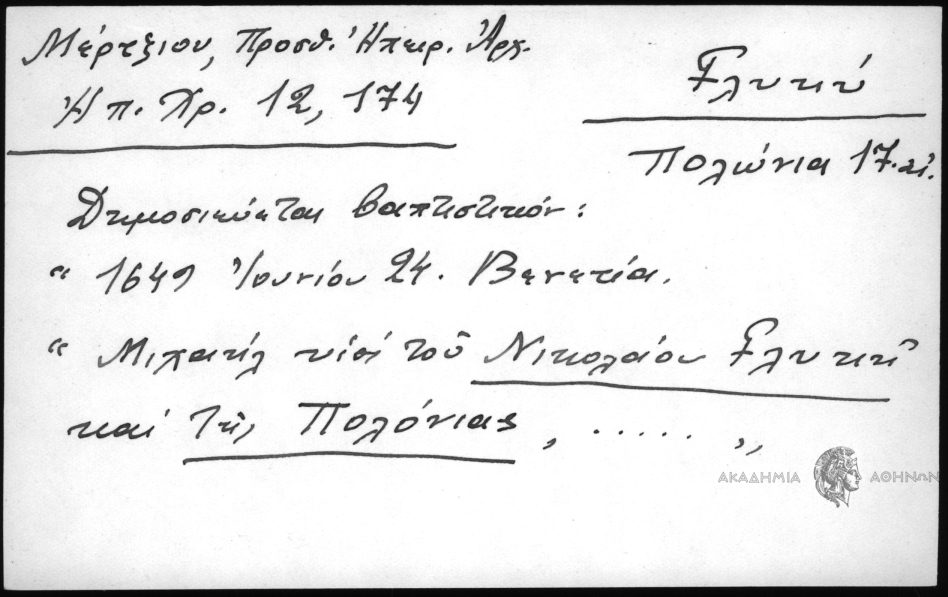 Μέρτζιου, Προσθ. Ἠπειρ. Ἀρχ.
Ἠπ. Χρ. 12, 174
Γλυκύ
Πολώνια 17. αἰ.
Δημοσιεύεται βαπτιστικόν:
“ 1649 Ἰουνίου 24. Βενετία.
“ Μιχαήλ υἱός τοῦ Νικολάου Γλυκῆ
καί τῆς Πολόνιας, ..... „
ΑΚΑΔΗΜΙΑ ΑΘΗΝΩΝ